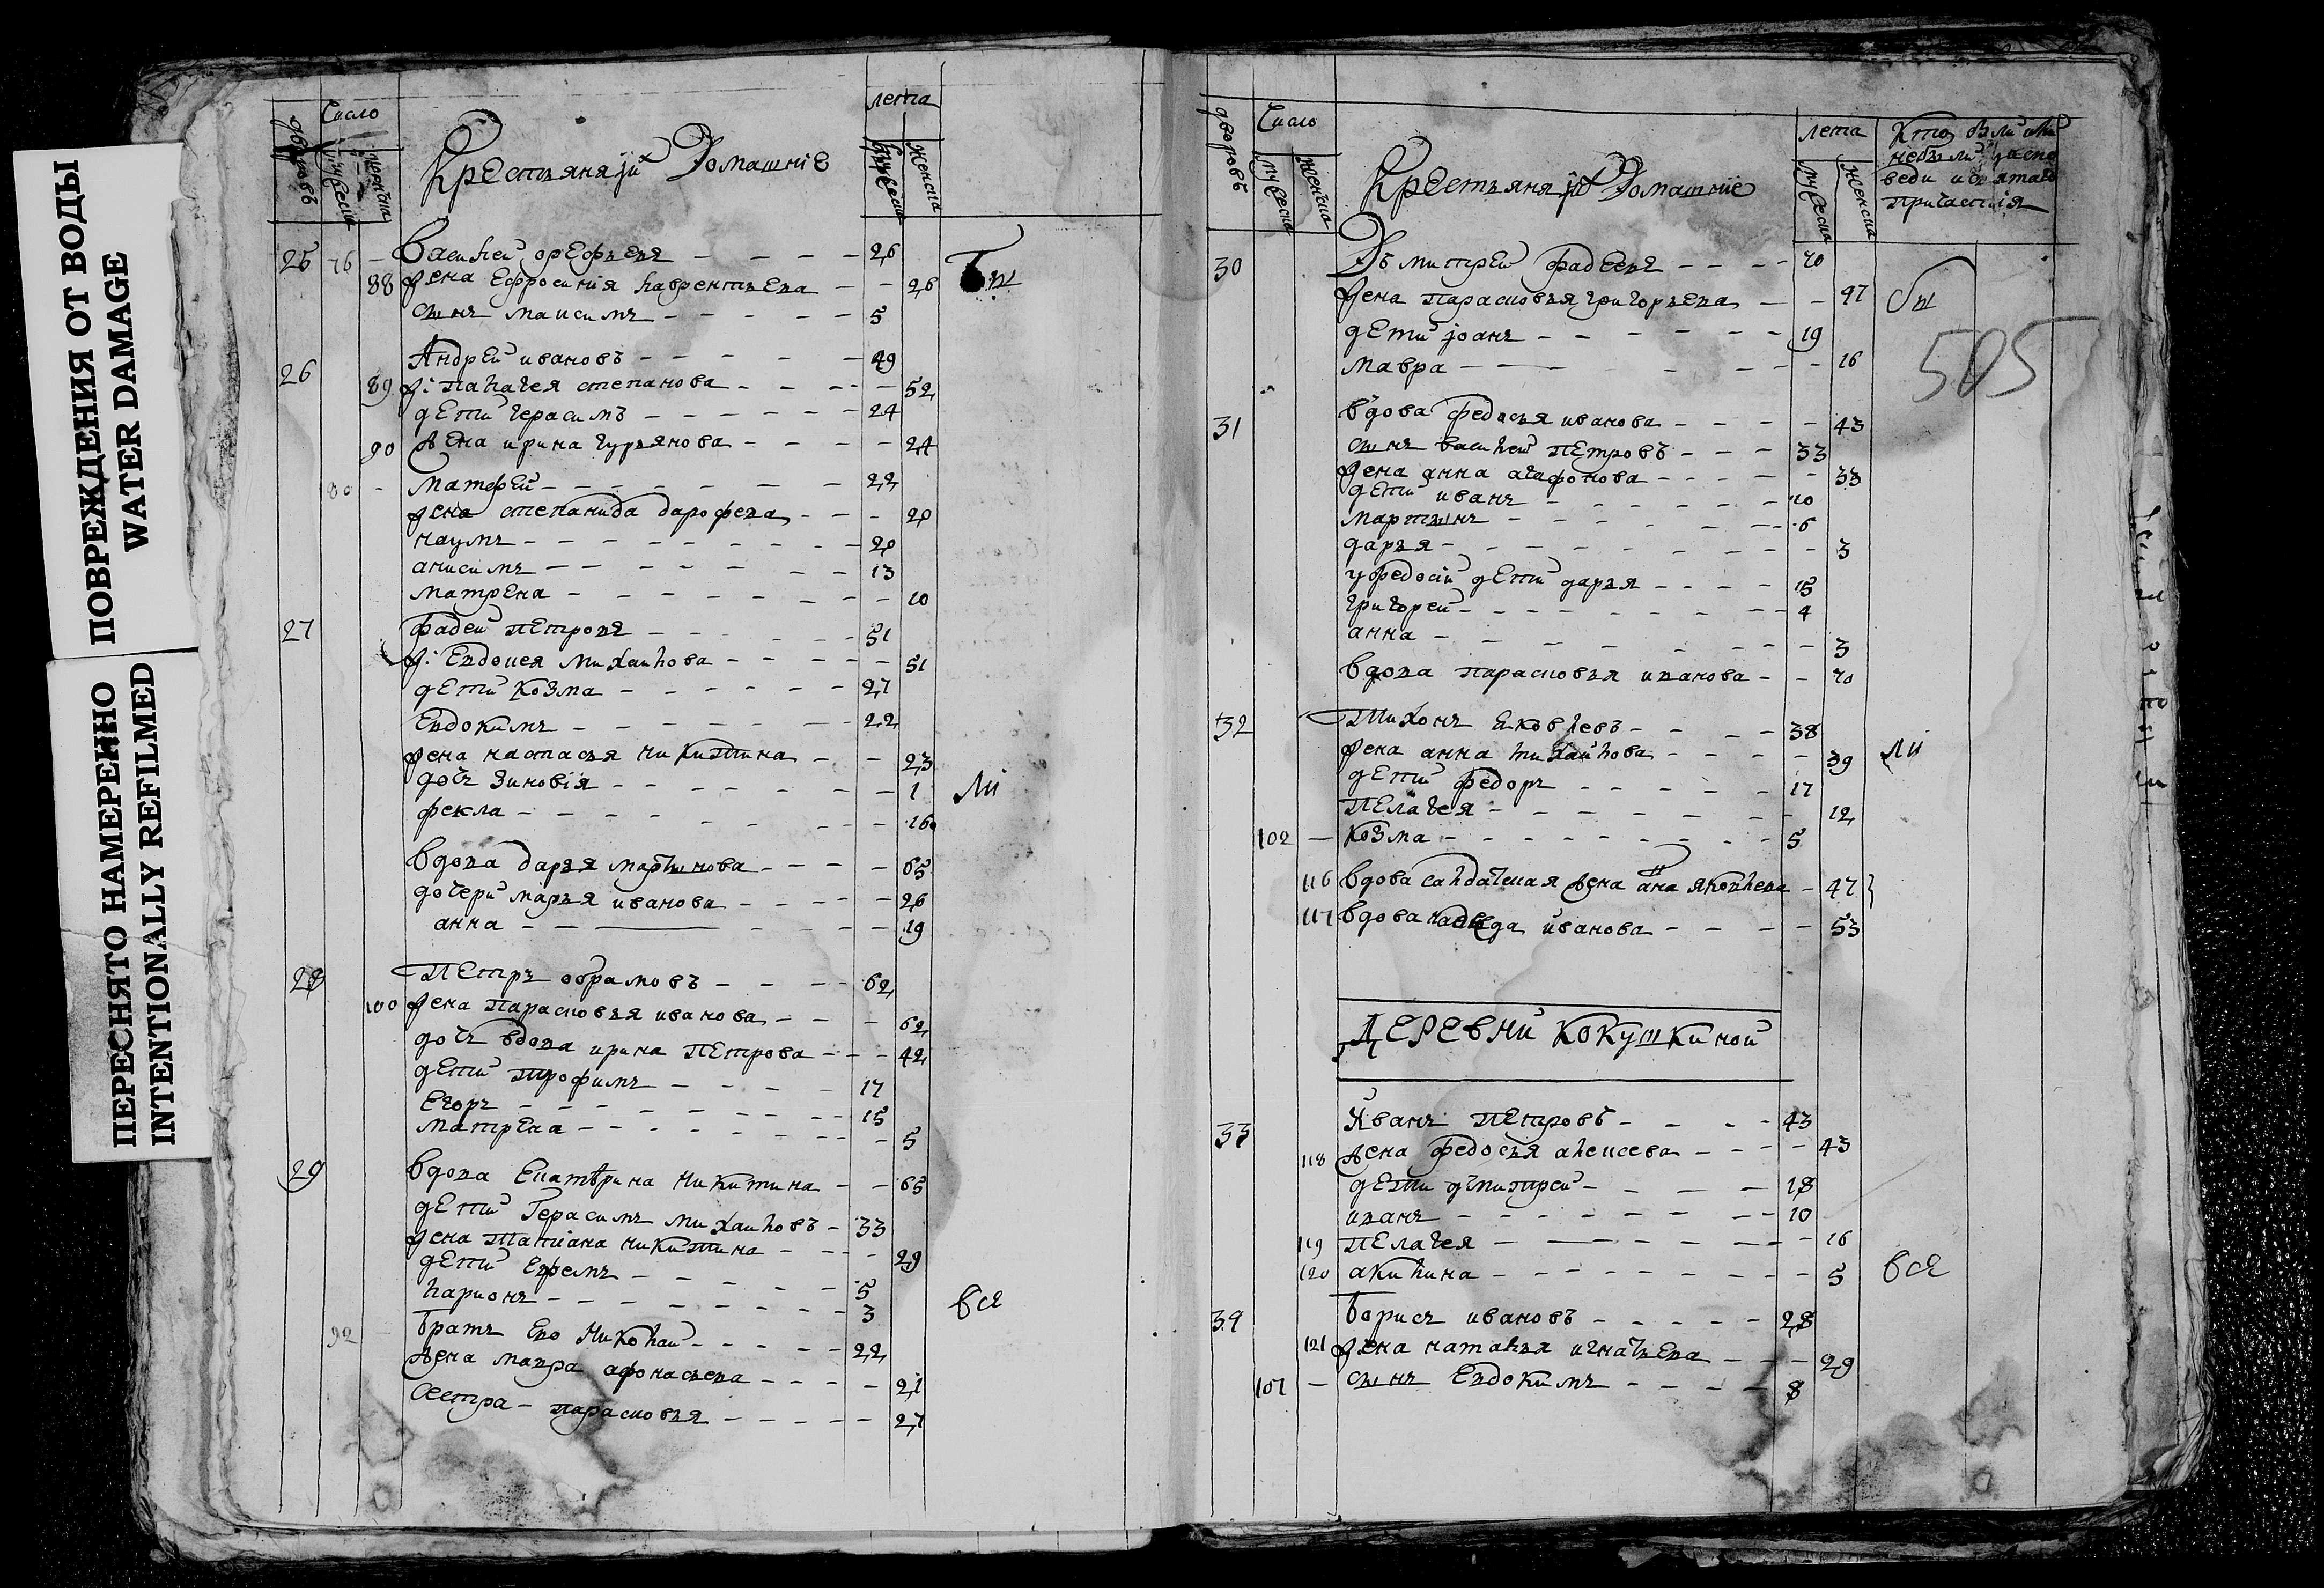 ПОВРЕЖДЕНИЯ ОТ ВОДЫ
WATER DAMAGE
ПЕРЕСНЯТО НАМЕРЕННО
INTENTIONALLY REFILMED
дворовъ Число лета
мужеска женска Крестьяня и домашніе мужеска женска
25 76 Василей арефьевъ 26
88 жена Ефросинія лаврентьева 26 бы
сынъ максимъ 5
26 Андрей ивановъ 49
89 ж: палагея степанова 52
дети герасимъ 24
90 жена ирина гурьянова 24
80 Матфей 22
жена степанида дарофева 20
наумъ 20
анисимъ 13
матрена 10
27 фадей петровъ 51
ж: Евдокея михаилова 51
дети козма 27
Евдокимъ 22
жена настасья никитина 23
дочь зиновія 1 ли
фекла 16
вдова дарья мартынова 65
дочери марья иванова 26
анна 19
28 Петръ абрамовъ 62
100 жена парасковья иванова 62
дочь вдова ирина петрова 42
дети трофимъ 17
Егоръ 15
матрена 5
29 вдова Екатѣрина никитина 65
дети Герасимъ михаиловъ 33
жена татіана никитина 29
дети Ефремъ 5
ларионъ 3 все
92 братъ Ево николай 22
жена мавра афонасьева 21
сестра парасковья 27
дворовъ Число лета Кто были или
небыли у испо
веди и святаго
причастія
мужеска женска Крестьяня и домашніе мужеска женска
30 Дъмитрей фадеевъ 70
жена парасковья григорьева 97 бы
дети іоанъ 19
мавра 16
505
31 вдова федосья иванова 43
сынъ василей петровъ 33
жена анна агафонова 33
дети иванъ 10
мартынъ 6
дарья 3
у федосіи дети дарья 15
григорей 4
анна 3
вдова парасковья иванова 70
32 Тихонъ яковлевъ 38
жена анна михаилова 39 ли
дети федоръ 17
пелагея 12
102 козма 5
116 вдова салдацкая жена анна яковлева 47
117 вдова надежда иванова 53
ДЕРЕВНИ КОКУШКИНОЙ
33 Иванъ петровъ 43
118 жена федосья алексеева 43
дети дъмитрей 18
иванъ 10
119 пелагея 16
120 акилина 5 все
34 борисъ ивановъ 28
121 жена наталья игнатьева 29
107 сынъ Евдокимъ 8